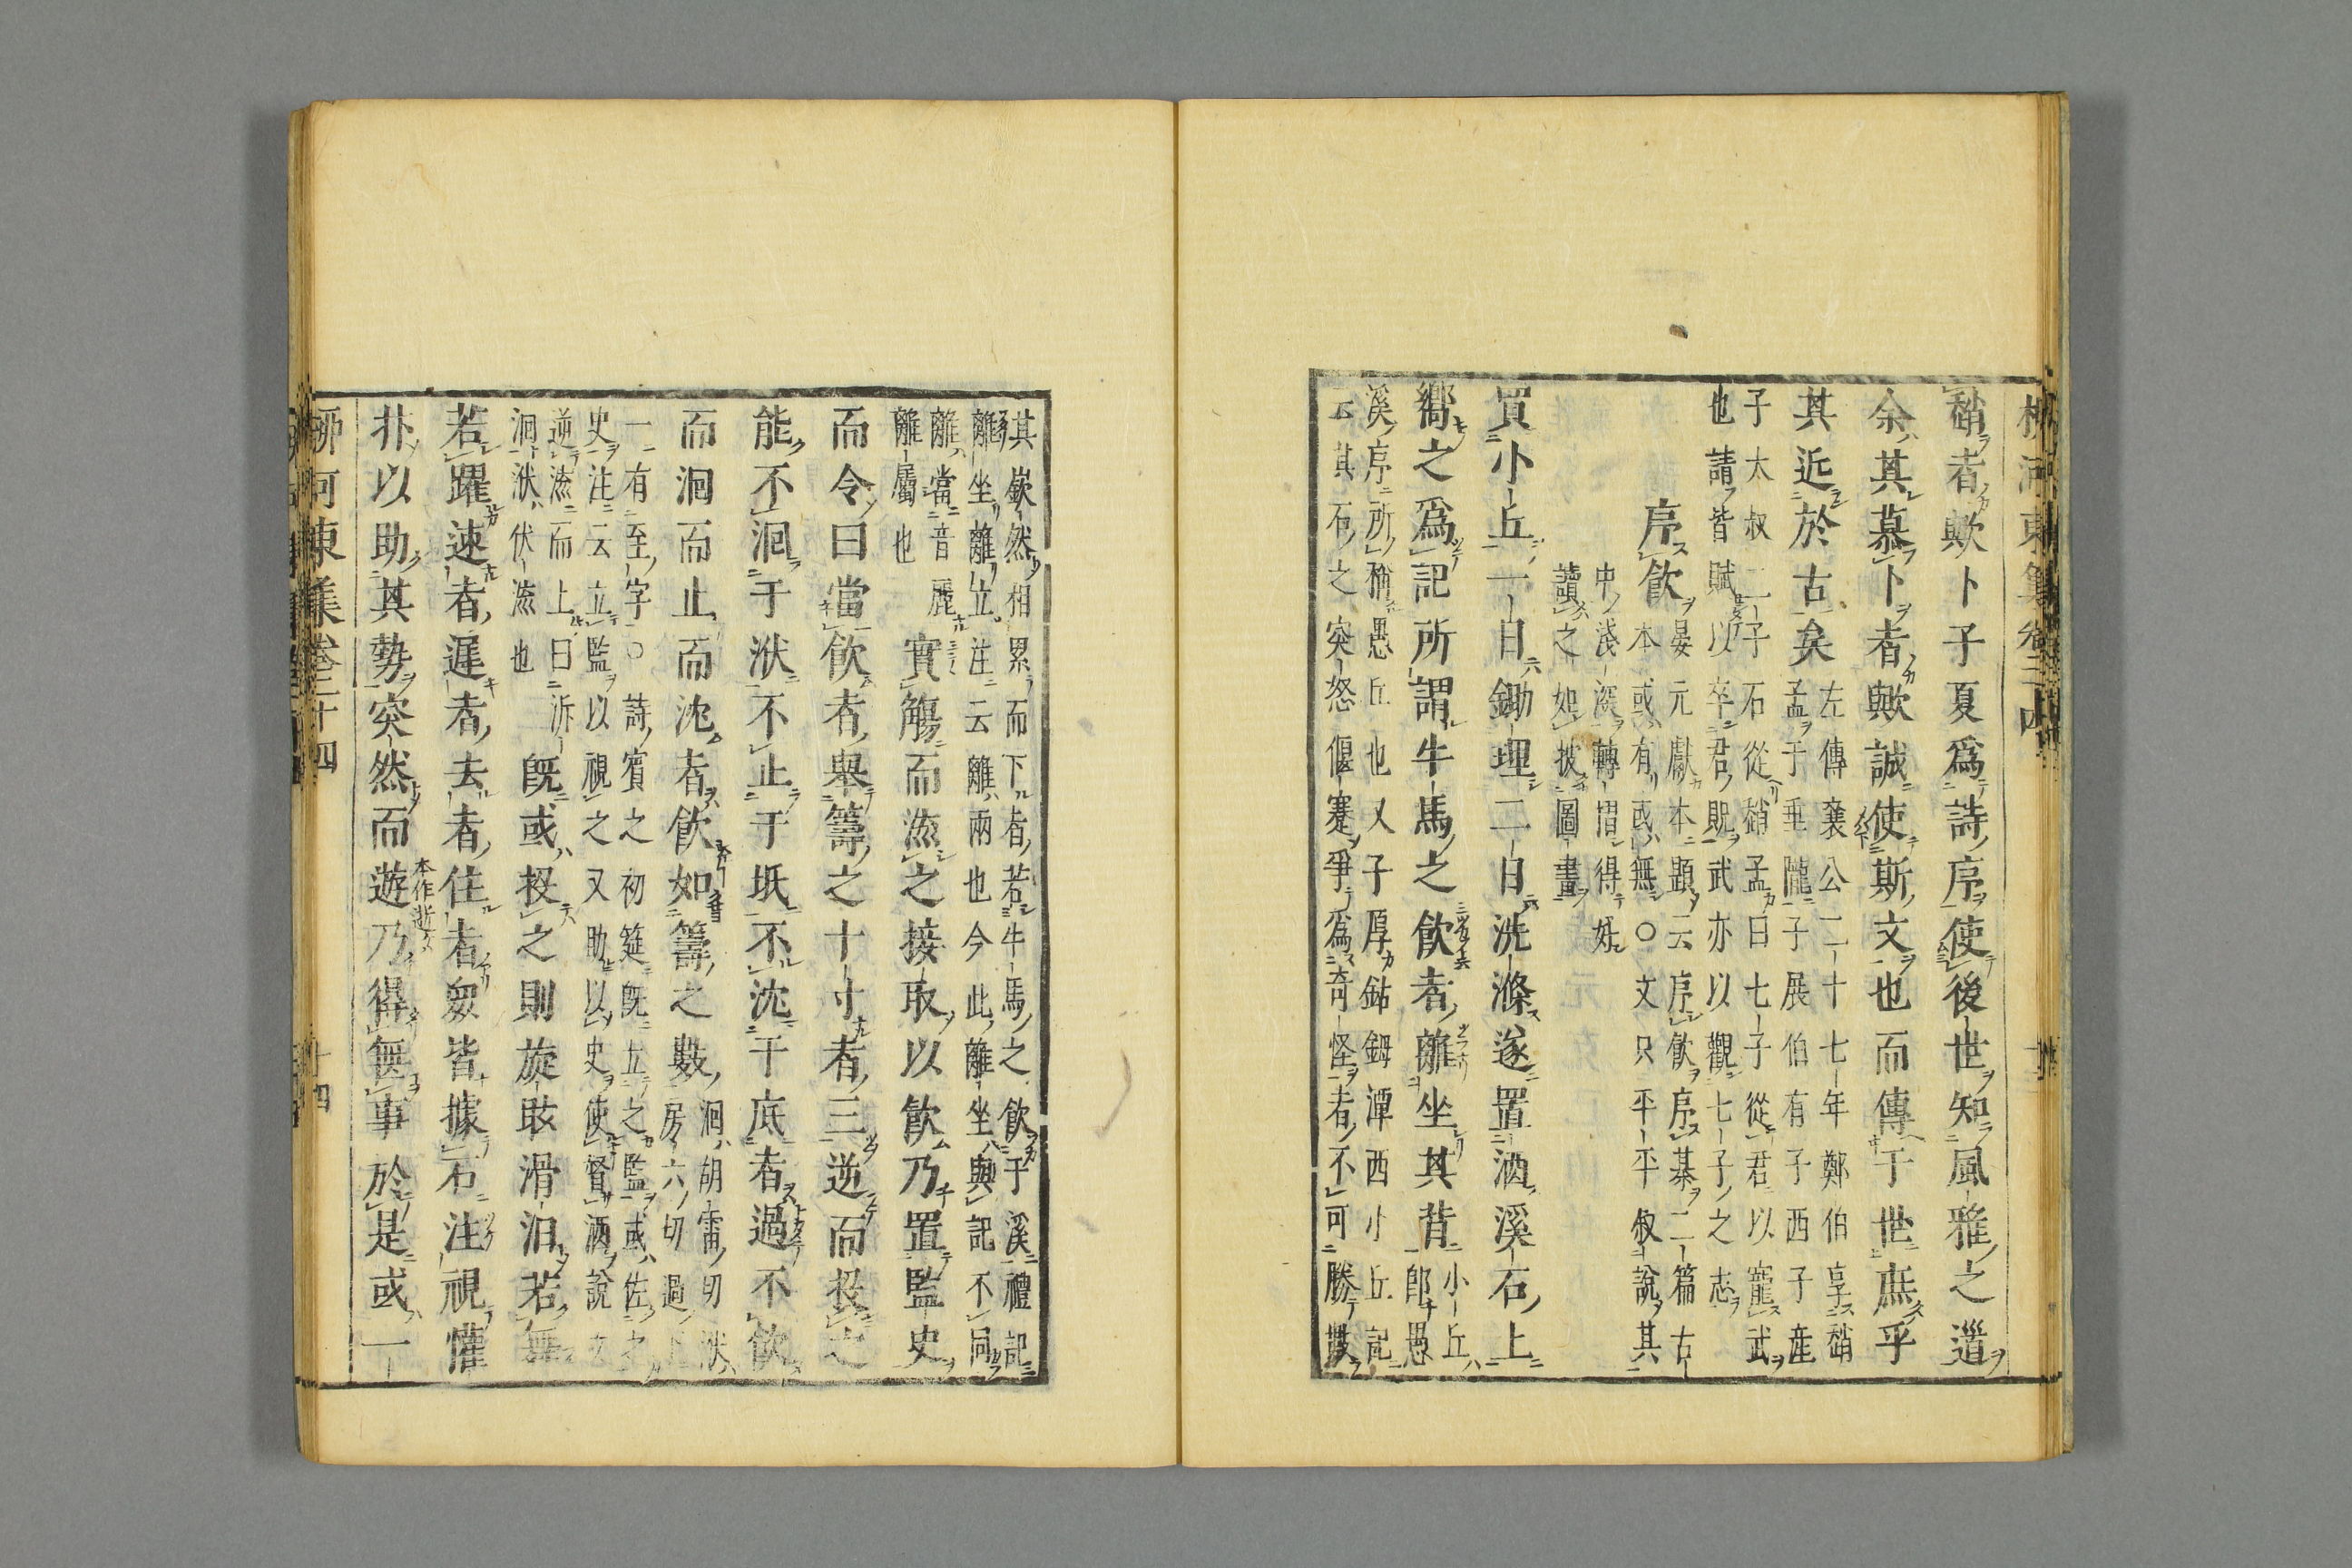 趙者歟卜子夏爲詩序使後世知風雅之道
余其慕卜者歟誠使斯文也而傳于世庶乎
其近於古矣
左傳襄公二十七年鄭伯享趙
孟于垂隴子展伯有子西子產
子太叔二子石從趙孟曰七子從君以寵武
也請皆賦以卒君貺武亦以觀七子之志
序飲
晏元獻本題云序飲序棊二篇古
本或有或無○文只平平敘說其
中淺深轉摺得好
讀之如披圖畫
買小丘一日鋤理二日洗滌遂置酒溪石上
嚮之爲記所謂牛馬之飲者離坐其背
小丘
卽愚
溪序所稱愚丘也又子厚鈷鉧潭西小丘記
云其石之突怒偃蹇爭爲奇怪者不可勝數
其嶔然相累而下者若牛馬之飲于溪禮記
離坐離立注云離兩也今此離坐與記不同
離當音麗
離屬也
實觴而流之接取以飲乃置監史
而令曰當飲者舉籌之十寸者三逆而投之
能不洄于洑不止于坻不沈于底者過不飲
而洄而止而沈者飲如籌之數
洄胡雷切洑
房六切過下
一有至字○詩賓之初筵既立之監或佐之
史注云立監以視之又助以史使督酒說文
逆流而上曰泝
洄洑伏流也
既或投之則旋眩滑汨若舞
若躍速者遲者去者住者衆皆據石注視懽
抃以助其勢突然而遊乃得無事於是或一
本作逝
柳河東集卷二十四
十四